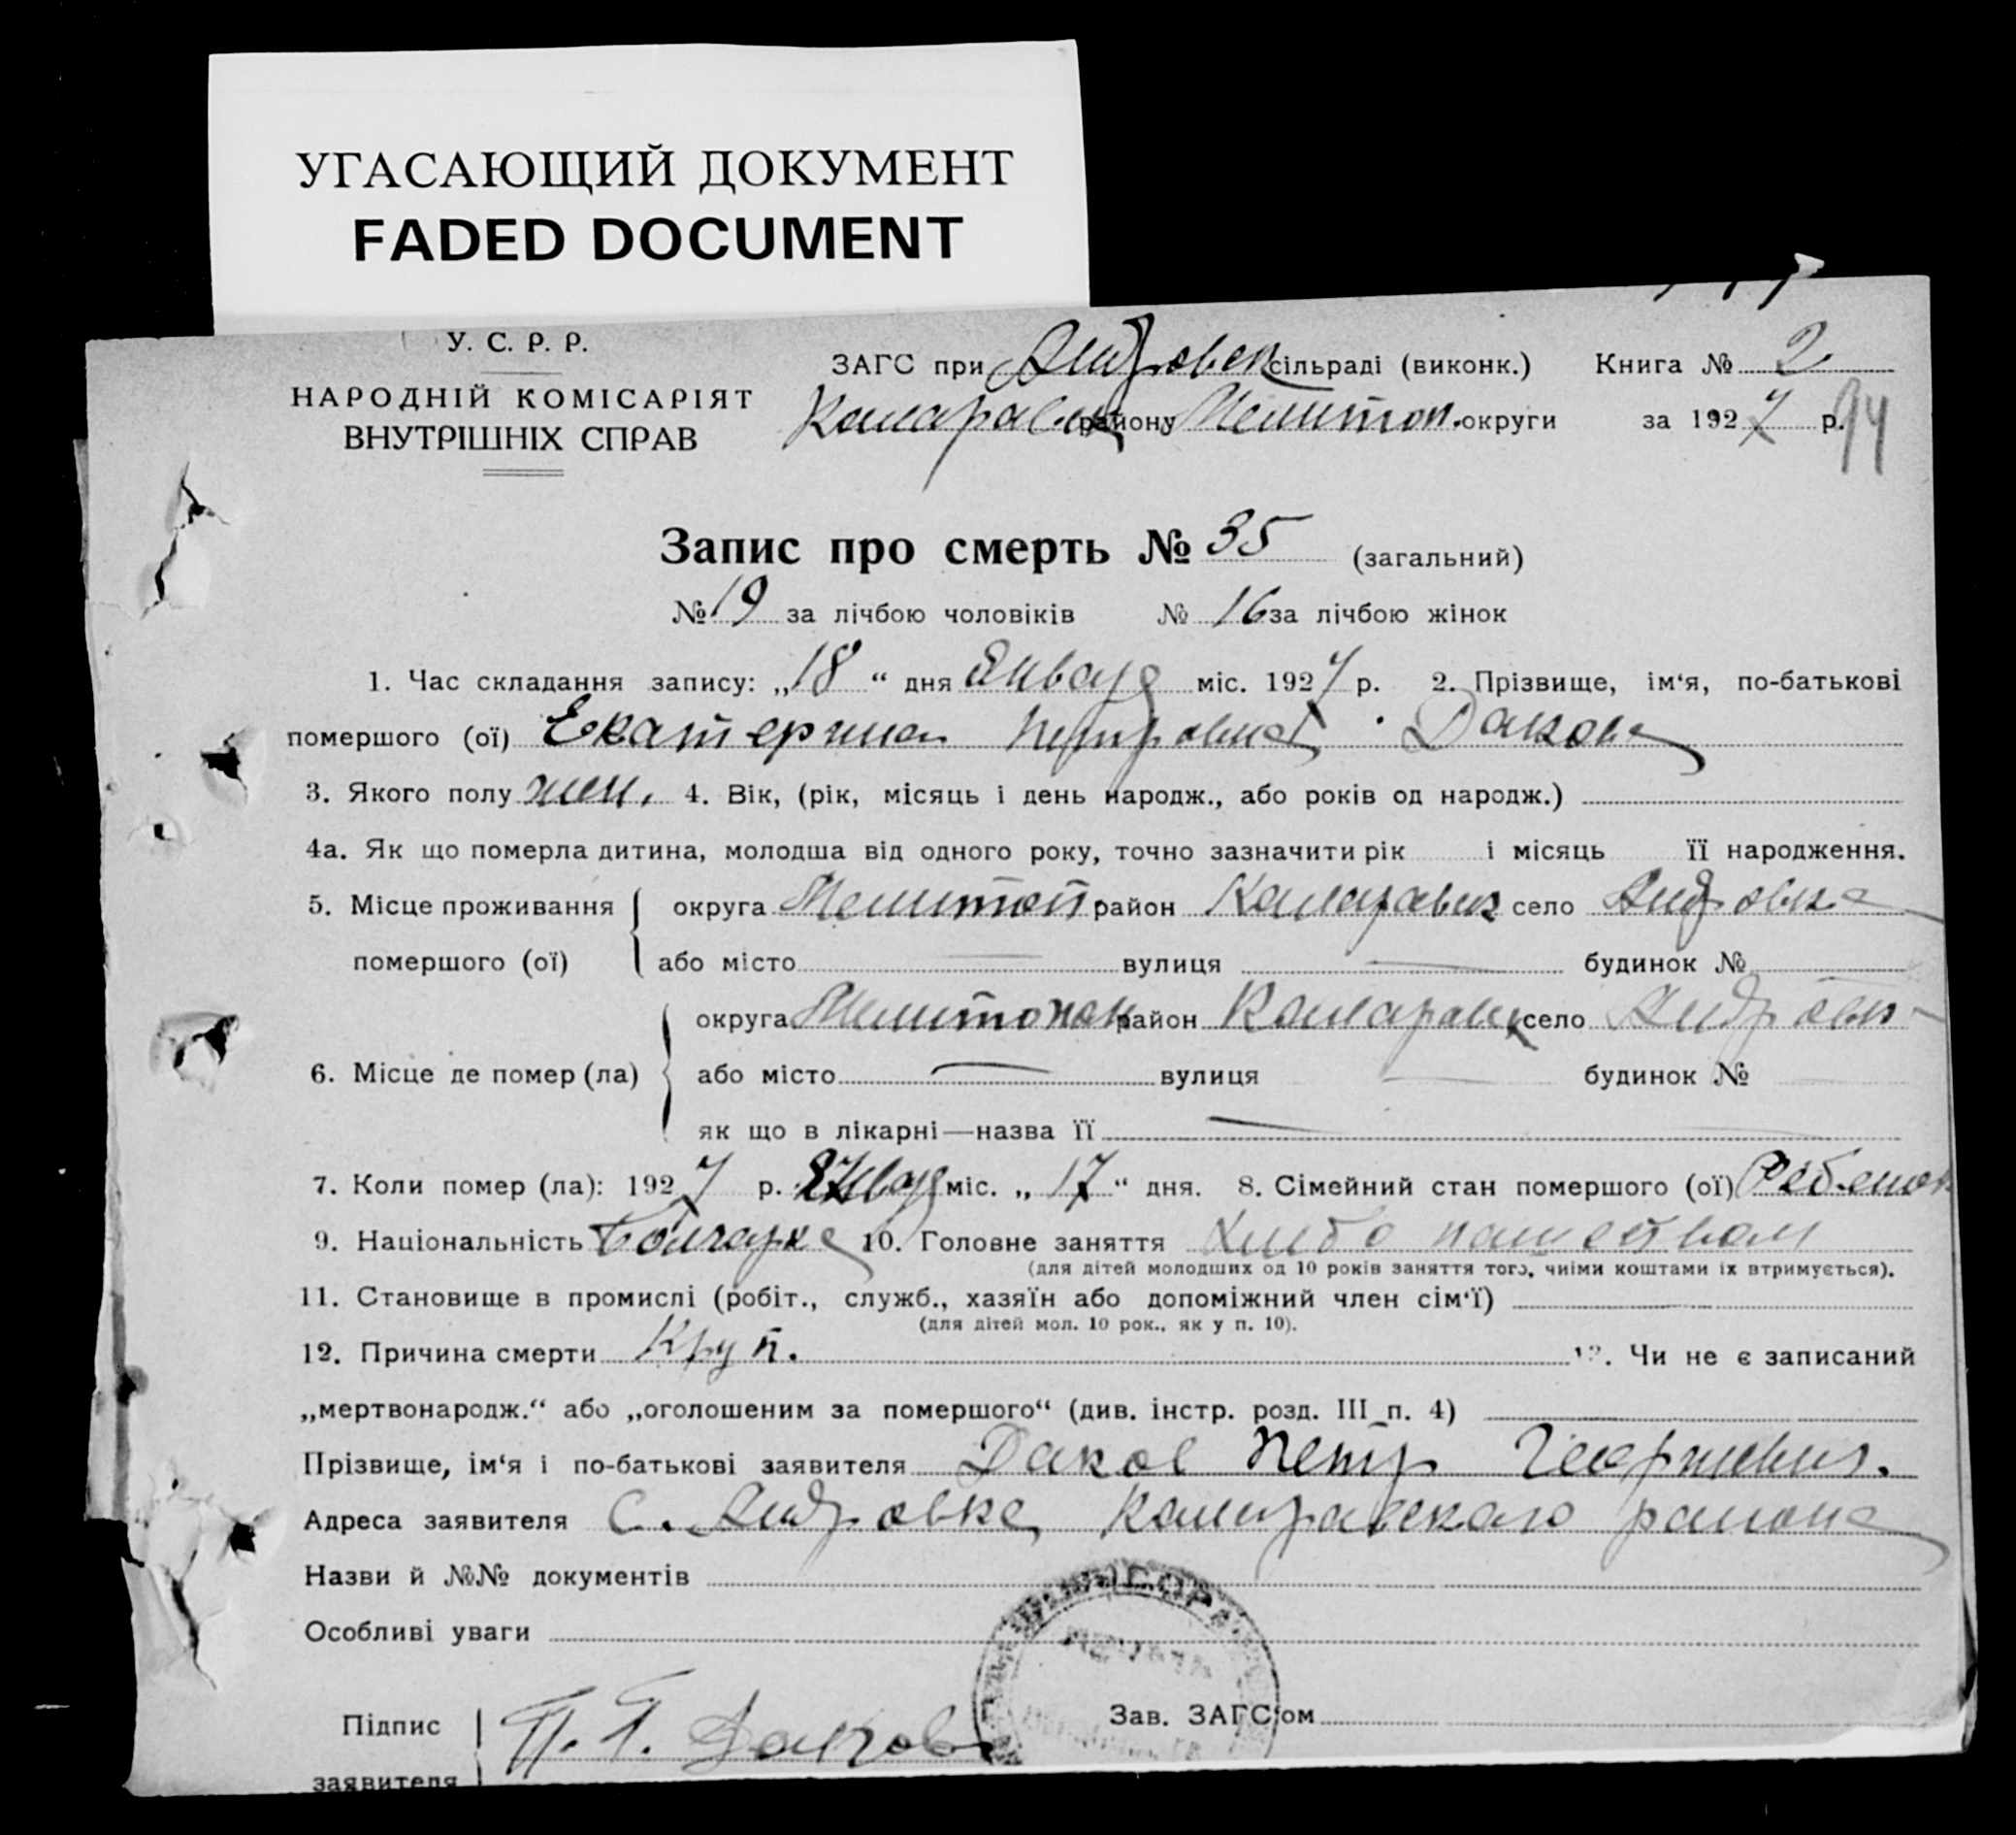 УГАСАЮЩИЙ ДОКУМЕНТ
FADED DOCUMENT
У. С. Р. Р.
НАРОДНІЙ КОМІСАРІЯТ
ВНУТРІШНІХ СПРАВ
ЗАГС при Андровск сільраді (виконк.) Книга № 2
району Мелитоп. округи за 1927 р.
94
Запис про смерть № 35 (загальний)
№ 19 за лічбою чоловіків № 16 за лічбою жінок
1. Час складання запису: „18“ дня Января міс. 1927 р. 2. Прізвище, ім‘я, по-батькові
помершого (ої) Екатерина Петровна Дакова
3. Якого полу жен. 4. Вік, (рік, місяць і день народж., або років од народж.)
4а. Як що померла дитина, молодша від одного року, точно зазначити рік і місяць її народження.
5. Місце проживання округа Мелитоп район село Андровка
помершого (ої) або місто — вулиця — будинок №
округа район село
6. Місце де помер (ла) або місто — вулиця — будинок № —
як що в лікарні—назва її —
7. Коли помер (ла): 1927 р. Январ міс. „17“ дня. 8. Сімейний стан помершого (ої) Ребенок
9. Національність Болгарка 10. Головне заняття
(для дітей молодших од 10 років заняття того, чиїми коштами їх втримується).
11. Становище в промислі (робіт., служб., хазяїн або допоміжний член сім‘ї)
(для дітей мол. 10 рок., як у п. 10).
12. Причина смерти Круп. 13. Чи не є записаний
„мертвонародж.“ або „оголошеним за помершого“ (див. інстр. розд. III п. 4)
Прізвище, ім‘я і по-батькові заявителя Даков Петр
Адреса заявителя с. Андровка района
Назви й №№ документів
Особливі уваги
Підпис П. Г. Даков Зав. ЗАГС‘ом
заявителя